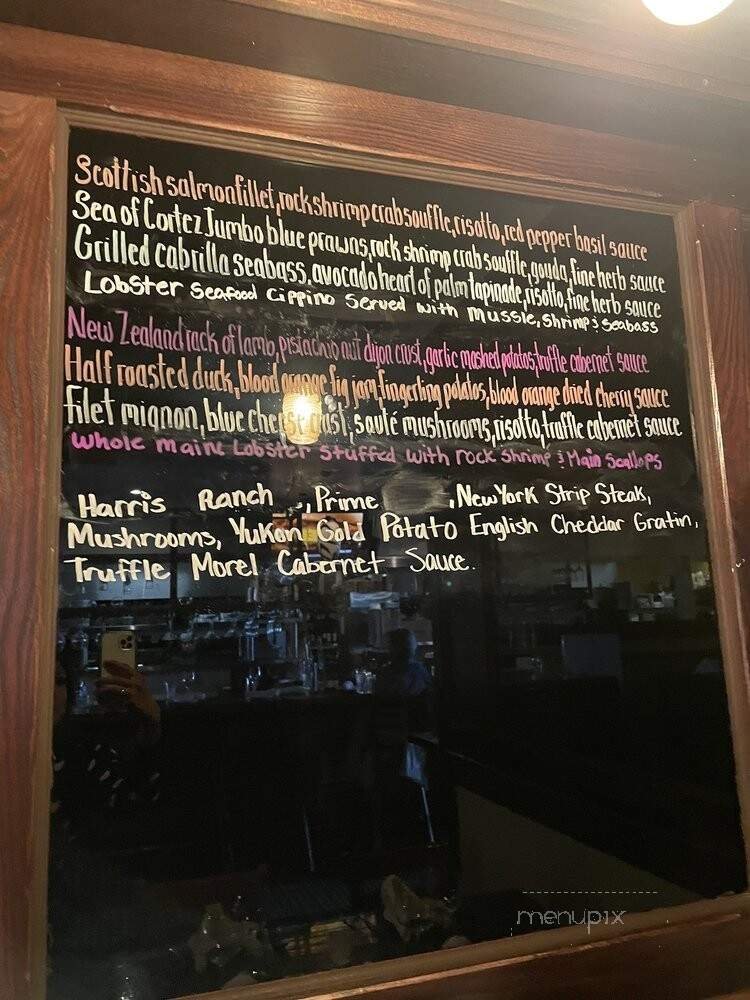 Scottish salmon fillet, rock shrimp crab souffle, risotto, red pepper basil sauce
Sea of Cortez Jumbo blue prawns, rock shrimp crab souffle, gouda, fine herb sauce
Grilled cabrilla seabass, avocado heart of palm tapinade, risotto, fine herb sauce
Lobster Seafood Cippino Served with Mussle, Shrimp & Seabass
New Zealand rack of lamb, pistachio nut dijon crust, garlic mashed potatos, truffle cabernet sauce
Half roasted duck, blood orange fig jam, fingerling potatos, blood orange dried cherry sauce
filet mignon, blue cheese crust, sauté mushrooms, risotto, truffle cabernet sauce
Whole maine Lobster Stuffed with rock Shrimp & Main Scallops
Harris Ranch , Prime , New York Strip Steak,
Mushrooms, Yukon Gold Potato English Cheddar Gratin,
Truffle Morel Cabernet Sauce.
menupix